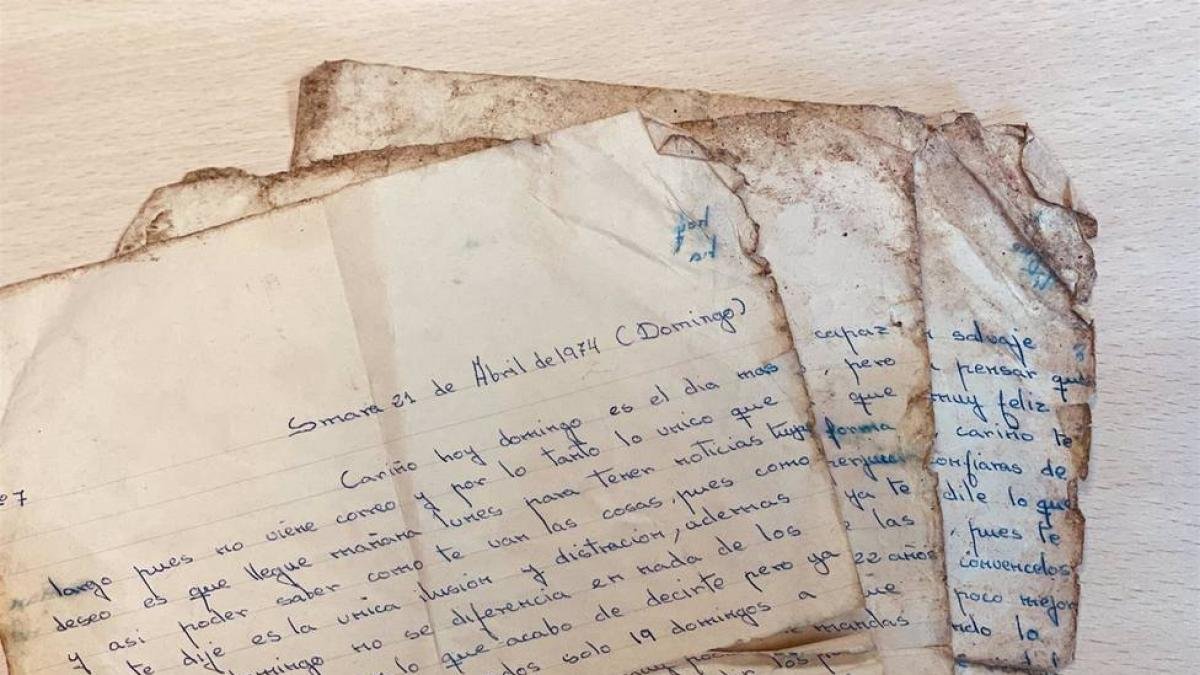 Smara 21 de Abril de 1974 (Domingo)
Cariño hoy domingo es el dia mas
largo pues no viene correo y por lo tanto lo unico que
deseo es que llegue mañana lunes para tener noticias tuyas
y asi poder saber como te van las cosas, pues como
te dije es la unica ilusión y distración, ademas
domingo no se diferencia en nada de los
lo que acabo de decirte pero ya
solo 19 domingos a
capaz
, pero
que
forma
ya te
las
22 años
que
mandas
salvaje
pensar que
muy feliz
cariño te
confiaras de
dile lo que
, pues te
convencelos
poco mejor
lo